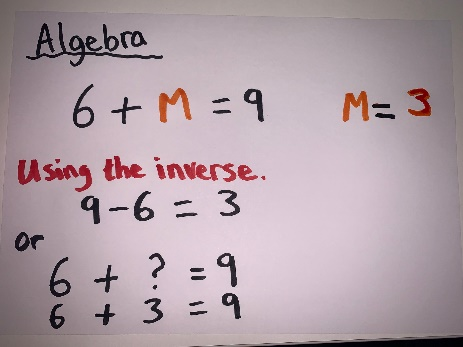 Algebra
6 + M = 9 M = 3
Using the inverse.
9 - 6 = 3
or
6 + ? = 9
6 + 3 = 9